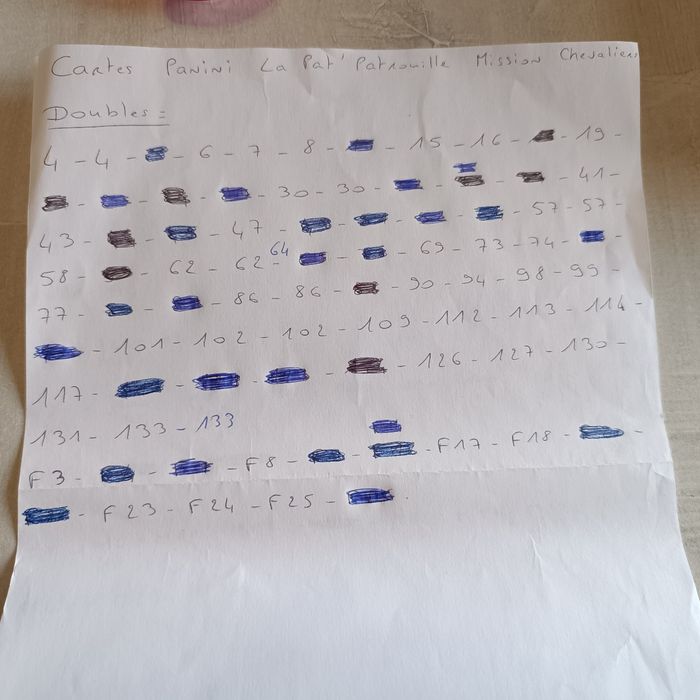 Cartes Panini La Pat' Patrouille Mission Chevaliers
Doubles =
4 - 4 - - 6 - 7 - 8 - - 15 - 16 - - 19 -
- - - - 30 - 30 - - - - 41 -
43 - - - 47 - - - - - 57 - 57 -
58 - - 62 - 62 - 64 - - 69 - 73 - 74 - -
77 - - - 86 - 86 - - 90 - 94 - 98 - 99 -
- 101 - 102 - 102 - 109 - 112 - 113 - 114 -
117 - - - - - 126 - 127 - 130 -
131 - 133 - 133
F3 - - - F8 - - - F17 - F18 - -
- F23 - F24 - F25 - .